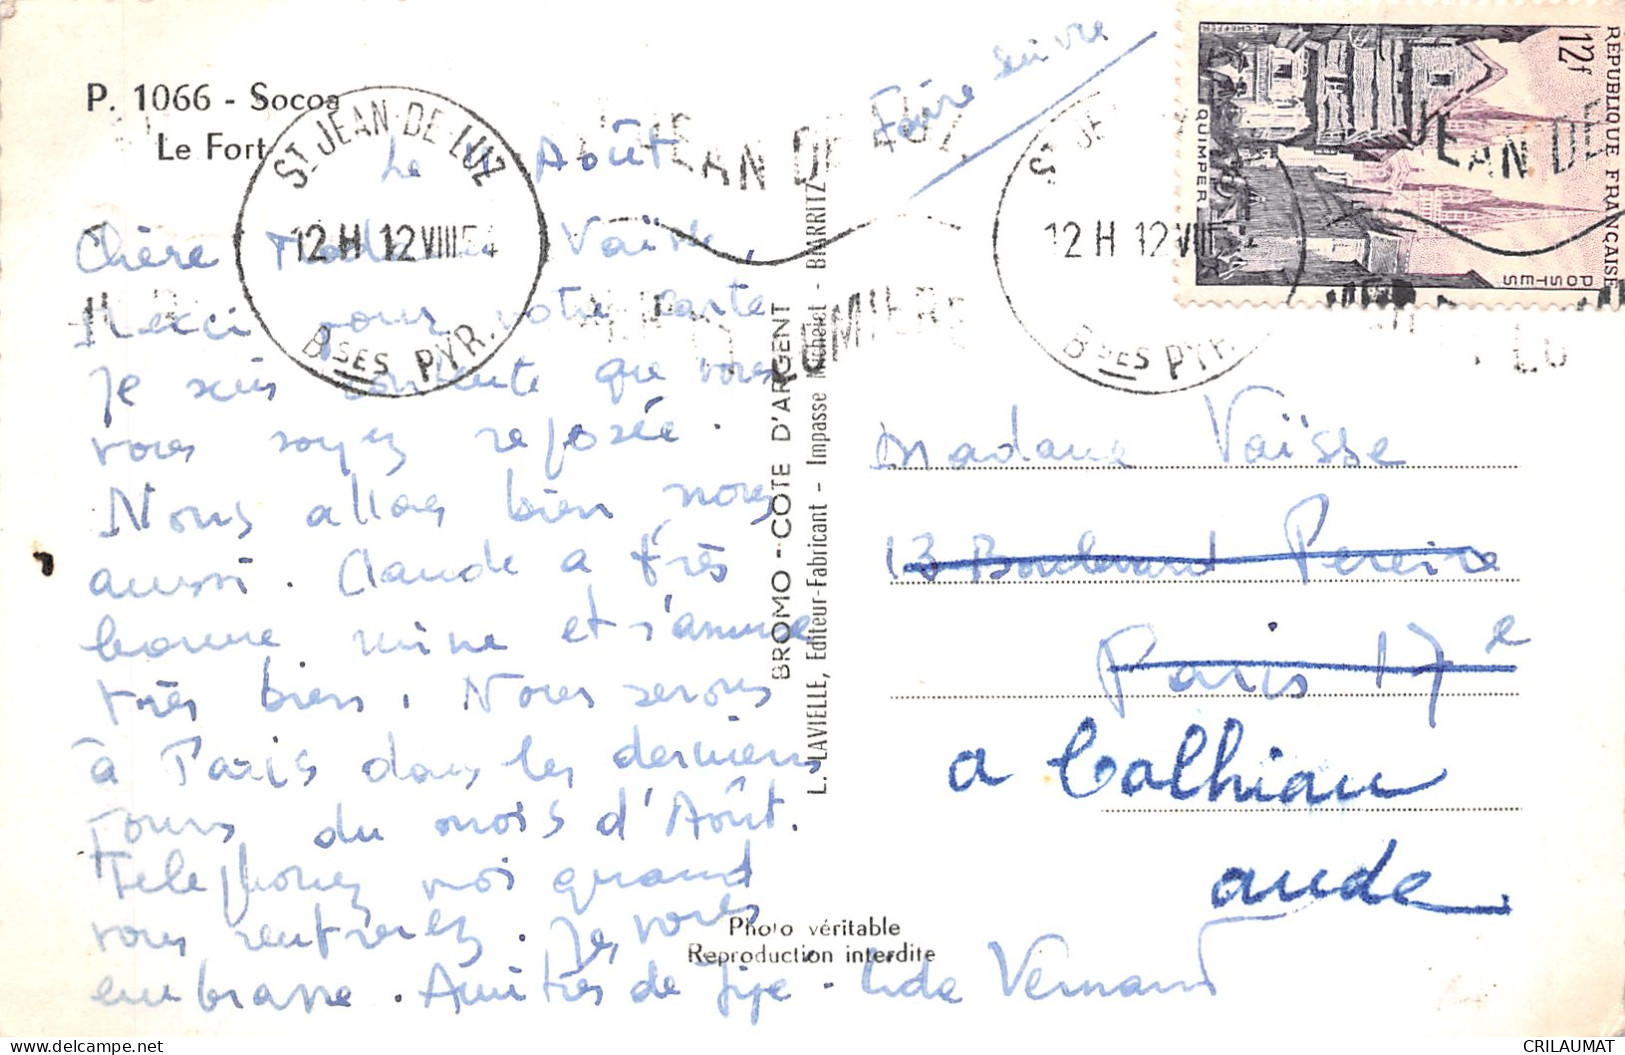 P. 1066 - Socoa
Le Fort
Le 11 Août
Chère Madame Vaïsse,
Merci pour votre carte
Je suis contente que vous
vous soyez reposée.
Nous allons bien, nous
aussi. Claude a très
bonne mine et s'amuse
très bien. Nous serons
à Paris dans les derniers
jours du mois d'Août.
Telephonez moi quand
vous rentrerez. Je vous
embrasse. Amitiés de Jije - Lida Vernand
BROMO - COTE D'ARGENT
L. LAVIELLE, Editeur-Fabricant - Impasse Michelet - BIARRITZ
Photo véritable
Reproduction interdite
Faire suivre
Madame Vaïsse
13 Boulevard Pereire
Paris 17e
a Talhian
aude
ST JEAN-DE-LUZ
12 H 12 VIII 54
BSES PYR.
ST JE
12 H 12 VIII
BSES PYR.
JEAN DE LUZ
LUMIERE
JEAN DE
LU
REPUBLIQUE FRANÇAISE
12f
POSTES
QUIMPER
H. CHEFFER
CRILAUMAT